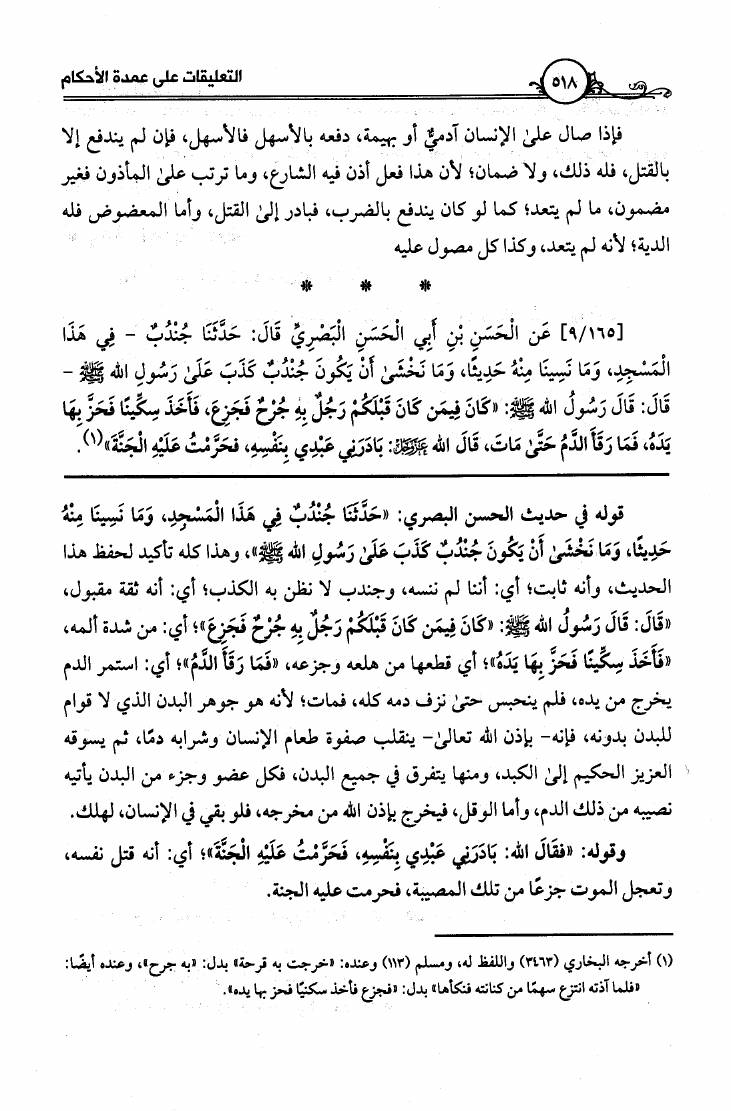 التعليقات على عمدة الأحكام
٥١٨
فإذا صال علىٰ الإنسان آدميٌّ أو بهيمة، دفعه بالأسهل فالأسهل، فإن لم يندفع إلا
بالقتل، فله ذلك، ولا ضمان؛ لأن هذا فعل أذن فيه الشارع، وما ترتب علىٰ المأذون فغير
مضمون، ما لم يتعد؛ كما لو كان يندفع بالضرب، فبادر إلىٰ القتل، وأما المعضوض فله
الدية؛ لأنه لم يتعد، وكذا كل مصول عليه
* * *
[٩/١٦٥] عَن الْحَسَنِ بْنِ أَبِي الْحَسَنِ الْبَصْرِيِّ قَالَ: حَدَّثَنَا جُنْدُبٌ - فِي هَذَا
الْمَسْجِدِ، وَمَا نَسِينَا مِنْهُ حَدِيثًا، وَمَا نَخْشَىٰ أَنْ يَكُونَ جُنْدُبٌ كَذَبَ عَلَىٰ رَسُولِ الله ﷺ -
قَالَ: قَالَ رَسُولُ الله ﷺ: «كَانَ فِيمَن كَانَ قَبْلَكُمْ رَجُلٌ بِهِ جُرْحٌ فَجَزِعَ، فَأَخَذَ سِكِّينًا فَحَزَّ بِهَا
يَدَهُ، فَمَا رَقَأَ الدَّمُ حَتَّىٰ مَاتَ، قَالَ الله عَزَّوَجَلَّ: بَادَرَنِي عَبْدِي بِنَفْسِهِ، فحَرَّمْتُ عَلَيْهِ الْجَنَّةَ»(١).
قوله في حديث الحسن البصري: «حَدَّثَنَا جُنْدُبٌ فِي هَذَا الْمَسْجِدِ، وَمَا نَسِينَا مِنْهُ
حَدِيثًا، وَمَا نَخْشَىٰ أَنْ يَكُونَ جُنْدُبٌ كَذَبَ عَلَىٰ رَسُولِ الله ﷺ»، وهذا كله تأكيد لحفظ هذا
الحديث، وأنه ثابت؛ أي: أننا لم ننسه، وجندب لا نظن به الكذب؛ أي: أنه ثقة مقبول،
«قَالَ: قَالَ رَسُولُ الله ﷺ: «كَانَ فِيمَن كَانَ قَبْلَكُمْ رَجُلٌ بِهِ جُرْحٌ فَجَزِعَ»؛ أي: من شدة ألمه،
«فَأَخَذَ سِكِّينًا فَحَزَّ بِهَا يَدَهُ»؛ أي قطعها من هلعه وجزعه، «فَمَا رَقَأَ الدَّمُ»؛ أي: استمر الدم
يخرج من يده، فلم ينحبس حتىٰ نزف دمه كله، فمات؛ لأنه هو جوهر البدن الذي لا قوام
للبدن بدونه، فإنه- بإذن الله تعالىٰ- ينقلب صفوة طعام الإنسان وشرابه دمًا، ثم يسوقه
العزيز الحكيم إلىٰ الكبد، ومنها يتفرق في جميع البدن، فكل عضو وجزء من البدن يأتيه
نصيبه من ذلك الدم، وأما الوقل، فيخرج بإذن الله من مخرجه، فلو بقي في الإنسان، لهلك.
وقوله: «فقَالَ الله: بَادَرَنِي عَبْدِي بِنَفْسِهِ، فَحَرَّمْتُ عَلَيْهِ الْجَنَّةَ»؛ أي: أنه قتل نفسه،
وتعجل الموت جزعًا من تلك المصيبة، فحرمت عليه الجنة.
(١) أخرجه البخاري (٣٤٦٣) واللفظ له، ومسلم (١١٣) وعنده: «خرجت به قرحة» بدل: «به جرح»، وعنده أيضًا:
«فلما آذته انتزع سهمًا من كنانته فنكأها» بدل: «فجزع فأخذ سكنيًا فحز بها يده».